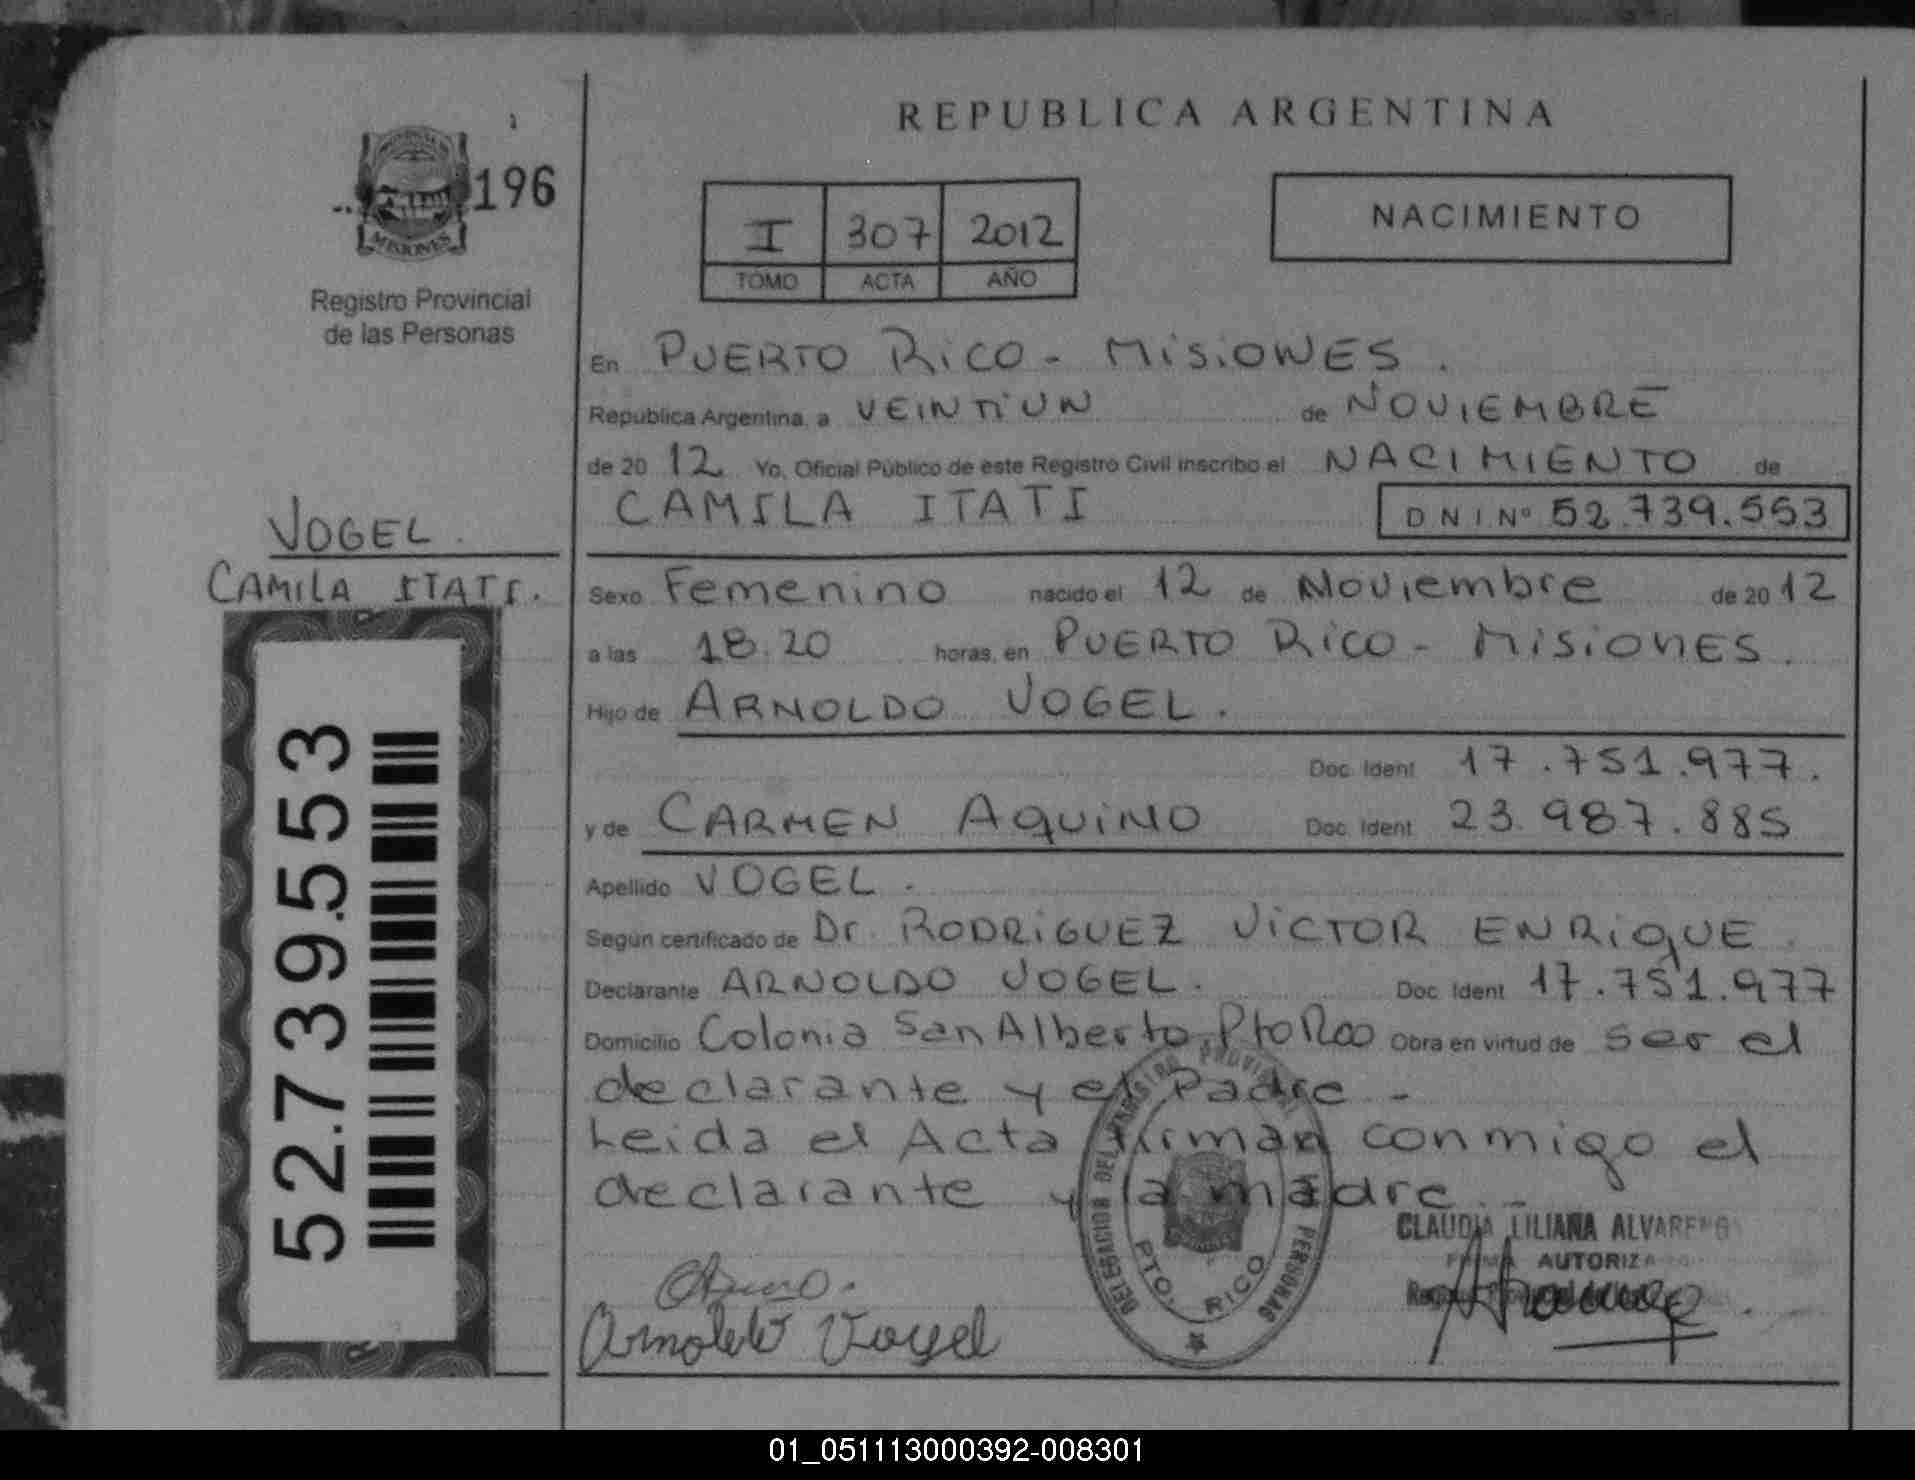 REPUBLICA ARGENTINA
196
MISIONES
Registro Provincial
de las Personas
I 307 2012
TOMO ACTA AÑO
NACIMIENTO
En PUERTO RICO - MISIONES.
Republica Argentina, a VEINTIUN de NOVIEMBRE
de 20 12 Yo, Oficial Público de este Registro Civil inscribo el NACIMIENTO de
CAMILA ITATI DNI Nº 52.739.553
VOGEL.
CAMILA ITATI.
Sexo Femenino nacido el 12 de Noviembre de 20 12
a las 18.20 horas, en PUERTO RICO - MISIONES.
Hijo de ARNOLDO VOGEL.
Doc. Ident. 17.751.977.
y de CARMEN AQUINO Doc. Ident. 23.987.885
Apellido VOGEL.
Según certificado de Dr. RODRIGUEZ VICTOR ENRIQUE.
Declarante ARNOLDO VOGEL. Doc. Ident 17.751.977
Domicilio Colonia San Alberto, Pto Rco Obra en virtud de ser el
declarante y el Padre -
Leida el Acta firman conmigo el
declarante y la madre.-
52.739.553
DELEGACION DEL REGISTRO PROVINCIAL PERSONAS
PTO. RICO
CLAUDIA LILIANA ALVARENGA
FIRMA AUTORIZADA
Arnoldo Vogel
01_051113000392-008301